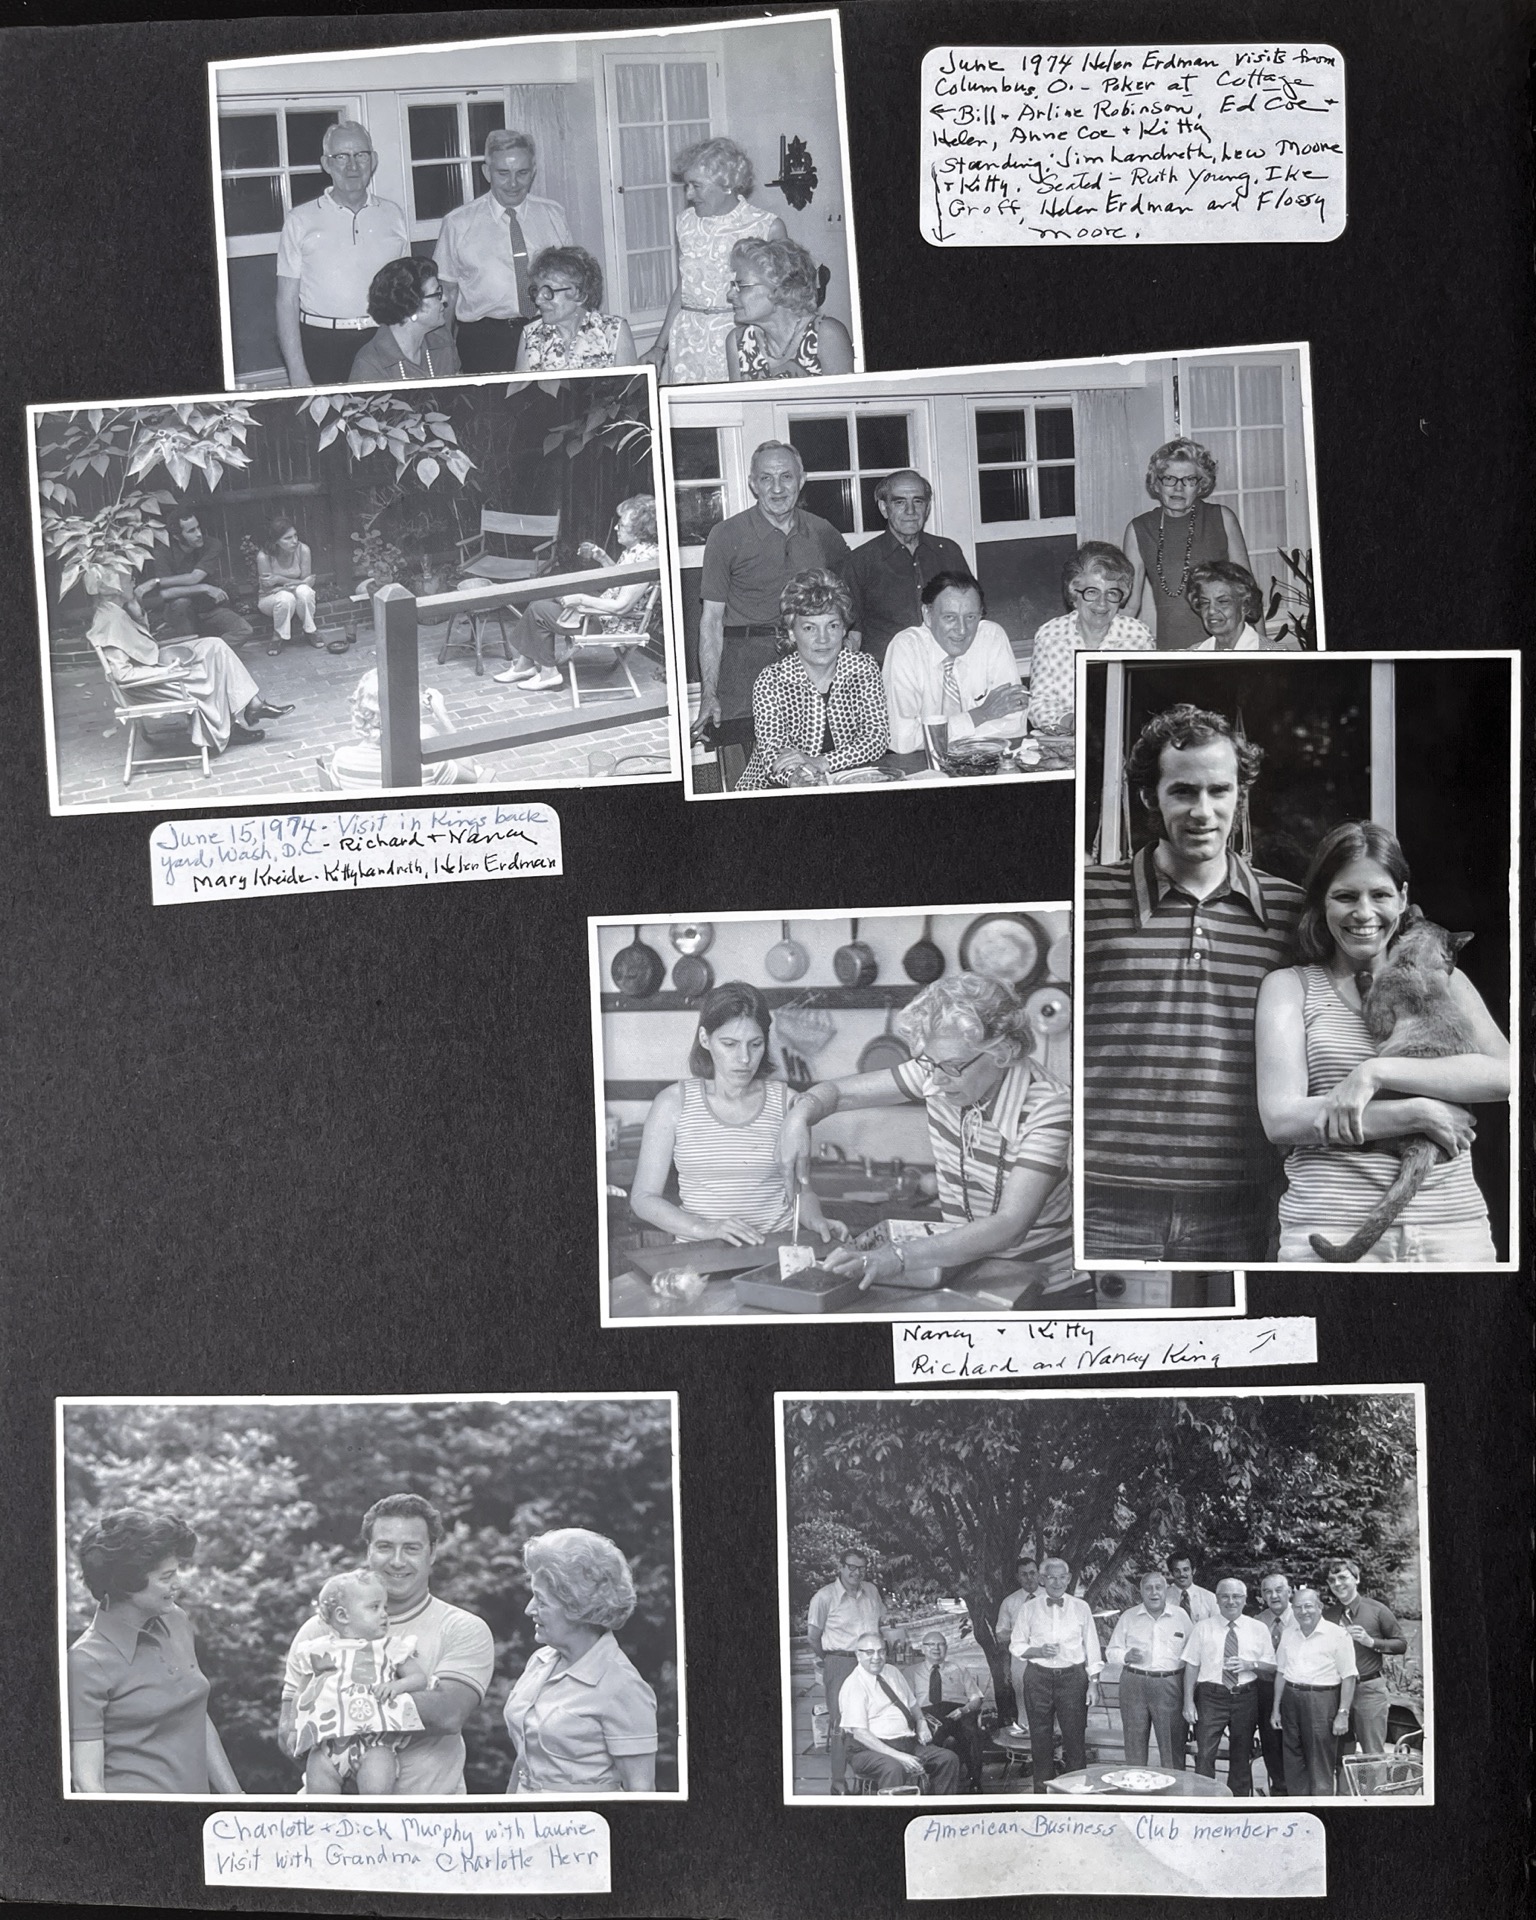 June 1974 Helen Erdman visits from
Columbus, O. - Poker at Cottage
← Bill + Arline Robinson, Ed Coe +
Helen, Anne Coe + Kitty
Standing: Jim Landreth, Lew Moore
+ Kitty. Seated - Ruth Young, Ike
Groff, Helen Erdman and Flossy
Moore.
June 15, 1974 - Visit in Kings back
yard, Wash, D.C. - Richard + Nancy
Mary Kreide - Kitty Landreth, Helen Erdman
Nancy + Kitty
Richard and Nancy King
Charlotte + Dick Murphy with Laurie
visit with Grandma Charlotte Herr
American Business Club members.